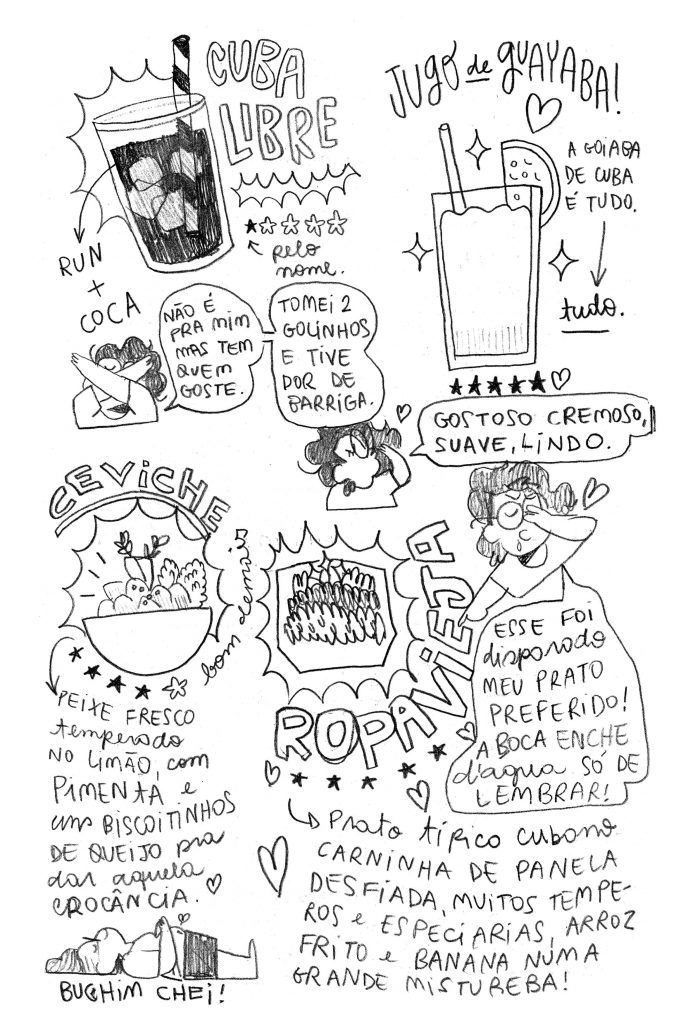 CUBA
LIBRE
pelo
nome.
RUN
+
COCA
NÃO É
PRA MIM
MAS TEM
QUEM
GOSTE.
TOMEI 2
GOLINHOS
E TIVE
DOR DE
BARRIGA.
JUGO de GUAYABA!
A GOIABA
DE CUBA
É TUDO.
tudo.
GOSTOSO CREMOSO,
SUAVE, LINDO.
CEVICHE
bom demais
PEIXE FRESCO
temperado
NO LIMÃO, com
PIMENTA e
uns BISCOITINHOS
DE QUEIJO pra
dar aquela
CROCÂNCIA.
BUCHIM CHEI!
ROPA VIEJA
ESSE FOI
disparado
MEU PRATO
PREFERIDO!
A BOCA ENCHE
d'agua SÓ DE
LEMBRAR!
Prato típico cubano
CARNINHA DE PANELA
DESFIADA, MUITOS TEMPE-
ROS e ESPECIARIAS, ARROZ
FRITO e BANANA NUMA
GRANDE MISTUREBA!